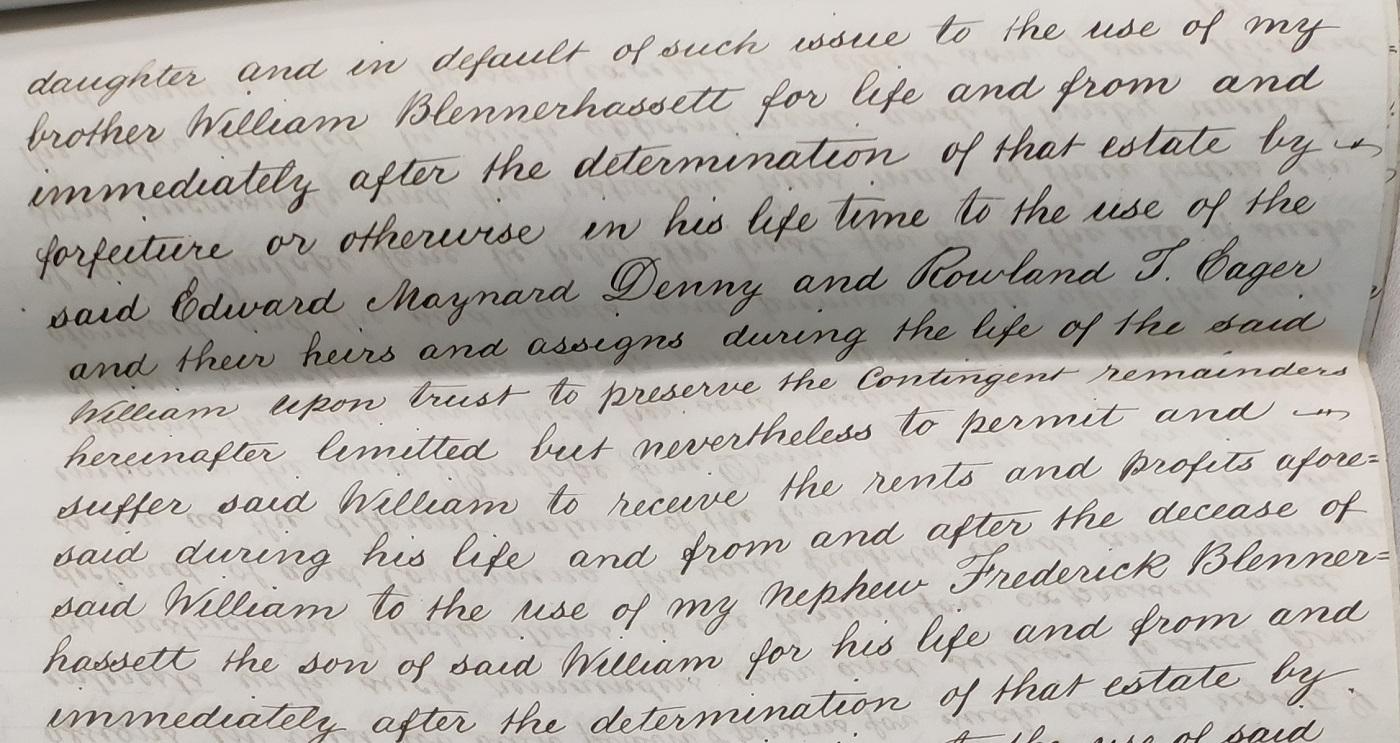 daughter and in default of such issue to the use of my
brother William Blennerhassett for life and from and
immediately after the determination of that estate by
forfeiture or otherwise in his life time to the use of the
said Edward Maynard Denny and Rowland T. Eager
and their heirs and assigns during the life of the said
William upon trust to preserve the Contingent remainders
hereinafter limitted but nevertheless to permit and
suffer said William to receive the rents and profits afore=
said during his life and from and after the decease of
said William to the use of my nephew Frederick Blenner=
hassett the son of said William for his life and from and
immediately after the determination of that estate by
to the use of said